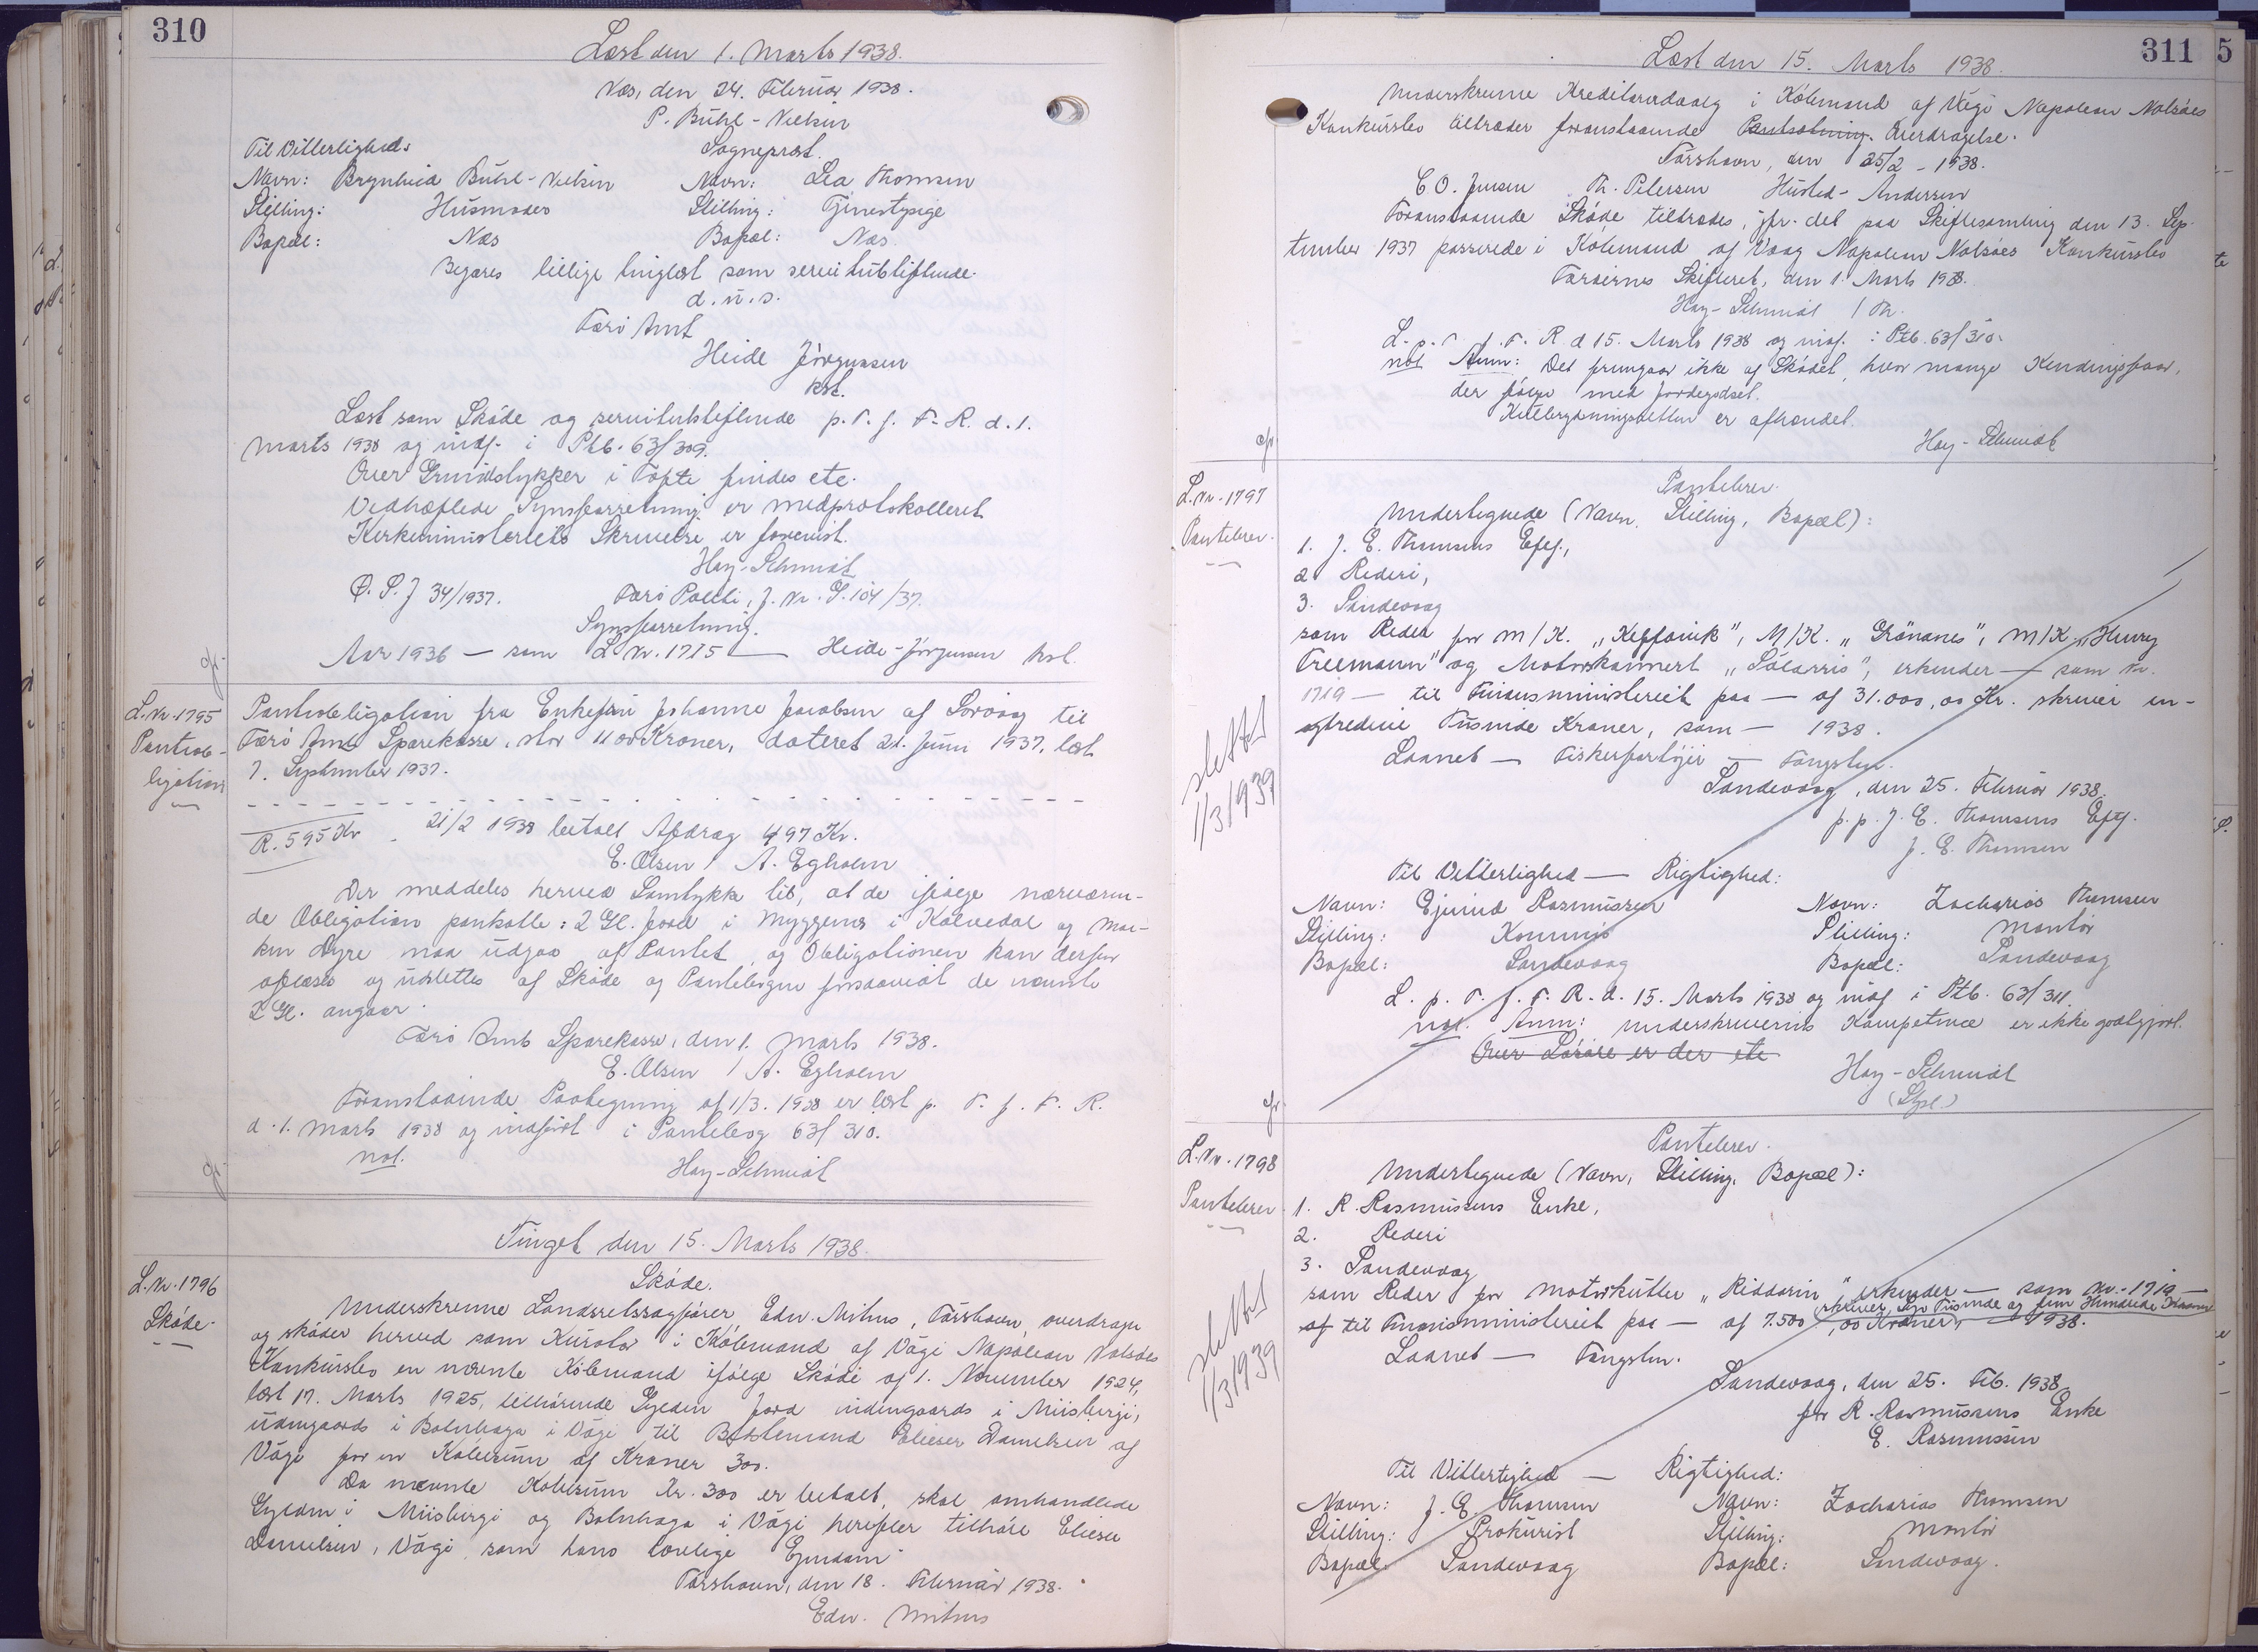 310
Læst den 1. Marts 1938.
Næs, den 24. Februar 1938.
P. Bühl-Nielsen
Sognepræst.
Til Vitterlighed:
Navn: Brynhild Bühl-Nielsen Navn: Lea Thomsen
Stilling: Husmoder Stilling: Tjenestepige
Bopæl: Næs Bopæl: Næs.
Begæres tillige tinglæst som servitutstiftende.
d.u.s.
Færø Amt
Heide Jörgensen
kst.
Læst som Sköde og servitutstiftende p. T. f. F. R. d. 1.
Marts 1938 og indf. i Ptb. 63/309.
Over Grundstykker i Tofte findes etc.
Vedhæftede Synsforretning er medprotokolleret
Kirkeministeriets Skrivelse er forevist.
Hay-Schmidt
Ø.S.J 34/1937. Færø Politi, J. Nr. G. 104/37.
Synsforretning.
Aar 1936 — som L. Nr. 1775 — Heide-Jörgensen kst.
L. Nr. 1795
Pantob-
ligation
Pantobligation fra Enkefru Johanne Jacobsen af Sorvaag til
Færø Amts Sparekasse, stor 1100 Kroner, dateret 21. Juni 1937, læst
7. September 1937.
R. 595 Kr. 21/2 1938 betalt Afdrag 497 Kr.
E. Olsen / A. Egholm
Der meddeles herved Samtykke til, at de ifølge nærværen-
de Obligation pantsatte: 2 Gl. Jord i Myggenæs i Kalvedal og Mar-
ken Dyre maa udgaa af Pantet, og Obligationen kan derfor
aflæses og udslettes af Sköde og Pantebögen forsaavidt de nævnte
2 Gl. angaar.
Færø Amts Sparekasse, den 1. Marts 1938.
E. Olsen / A. Egholm
Foranstaaende Paategning af 1/3. 1938 er læst p. T. f. F. R.
d. 1. Marts 1938 og indført i Pantebog 63/310.
not. Hay-Schmidt
Tinget den 15. Marts 1938.
L. Nr. 1796
Sköde.
Sköde.
Underskrevne Landsretssagfører Edw. Mitens, Tórshavn, overdrager
og sköder herved som Kurator i Købmand af Vági Napoleon Nolsöes
Konkursbo en nævnte Købmand ifølge Sköde af 1. November 1924,
læst 17. Marts 1925, tilhörende Gylden Jord indengaards i Miisbergi,
udengaards i Bolnhaga i Vági til Baadsmand Elieser Danielsen af
Vági for en Købesum af Kroner 300.
Da nævnte Købesum Kr. 300 er betalt, skal omhandlede
Gylden i Miisbergi og Bolnhaga i Vági herefter tilhöre Elieser
Danielsen, Vági, som hans lovlige Ejendom.
Tórshavn, den 18. Februar 1938.
Edw. Mitens
311
Læst den 15. Marts 1938.
Underskrevne Kreditorudvalg i Købmand af Vági Napoleon Nolsöes
Konkursbo tiltræder foranstaaende Pantsætning. Overdragelse.
Tórshavn, den 25/2 - 1938.
C O. Jensen Th. Petersen Husted-Andersen
Foranstaaende Sköde tiltrædes, jfr. det paa Skiftesamling den 13. Sep-
tember 1937 passerede i Købmand af Vaag Napoleon Nolsöes Konkursbo
Færøernes Skifteret, den 1. Marts 1938.
Hay-Schmidt / Th.
L. p. T. f. F. R. d 15. Marts 1938 og indf. i Ptb. 63/310.
not. Anm: Det fremgaar ikke af Skødet, hvor mange Kendingsfaar,
der følger med Jordegodset.
Kulbrydningsretten er afhændet.
Hay-Schmidt
L. Nr. 1797
Pantebrev.
Pantebrev.
Undertegnede (Navn, Stilling, Bopæl):
1. J. E. Thomsens Eftf.,
2 Rederi,
3. Sandevaag
som Reder for M/K. „Keflavik", M/K. „Grönanes", M/K. „Henry
Freemann" og Motorskonnert „Sólarris", erkender — som Nr.
1719 — til Finansministeriet paa — af 31.000,00 Kr. skriver en-
ogtredive Tusinde Kroner, som — 1938.
Laanet — Fiskerfartøjer — Fangsten.
Sandevaag, den 25. Februar 1938.
p.p. J. E. Thomsens Eftf.
J. E. Thomsen
slettet
1/3 1939
Til Vitterlighed — Rigtighed:
Navn: Ejvind Rasmussen Navn: Zacharias Thomsen
Stilling: Kommis Stilling: Montör
Bopæl: Sandevaag Bopæl: Sandevaag
L. p. T. f. F. R. d. 15. Marts 1938 og indf i Ptb. 63/311.
not. Anm: Underskriverens Kompetence er ikke godtgjort.
Over Løsøre er der etc
Hay-Schmidt
L. Nr. 1798
Pantebrev.
Pantebrev.
Undertegnede (Navn, Stilling, Bopæl):
1. R. Rasmussens Enke,
2. Rederi
3. Sandevaag
som Reder for Motorkutter „Riddarin", erkender — som Nr. 1719 —
skriver Syv Tusinde og fem Hundrede Kroner
af til Finansministeriet paa — af 7.500,00 Kroner, — 1938.
Laanet — Fangsten.
Sandevaag, den 25. Feb. 1938
for R. Rasmussens Enke
E. Rasmussen
slettet
1/3 1939
Til Vitterlighed — Rigtighed:
Navn: J. E. Thomsen Navn: Zacharias Thomsen
Stilling: Prokurist Stilling: Montör
Bopæl: Sandevaag Bopæl: Sandevaag.